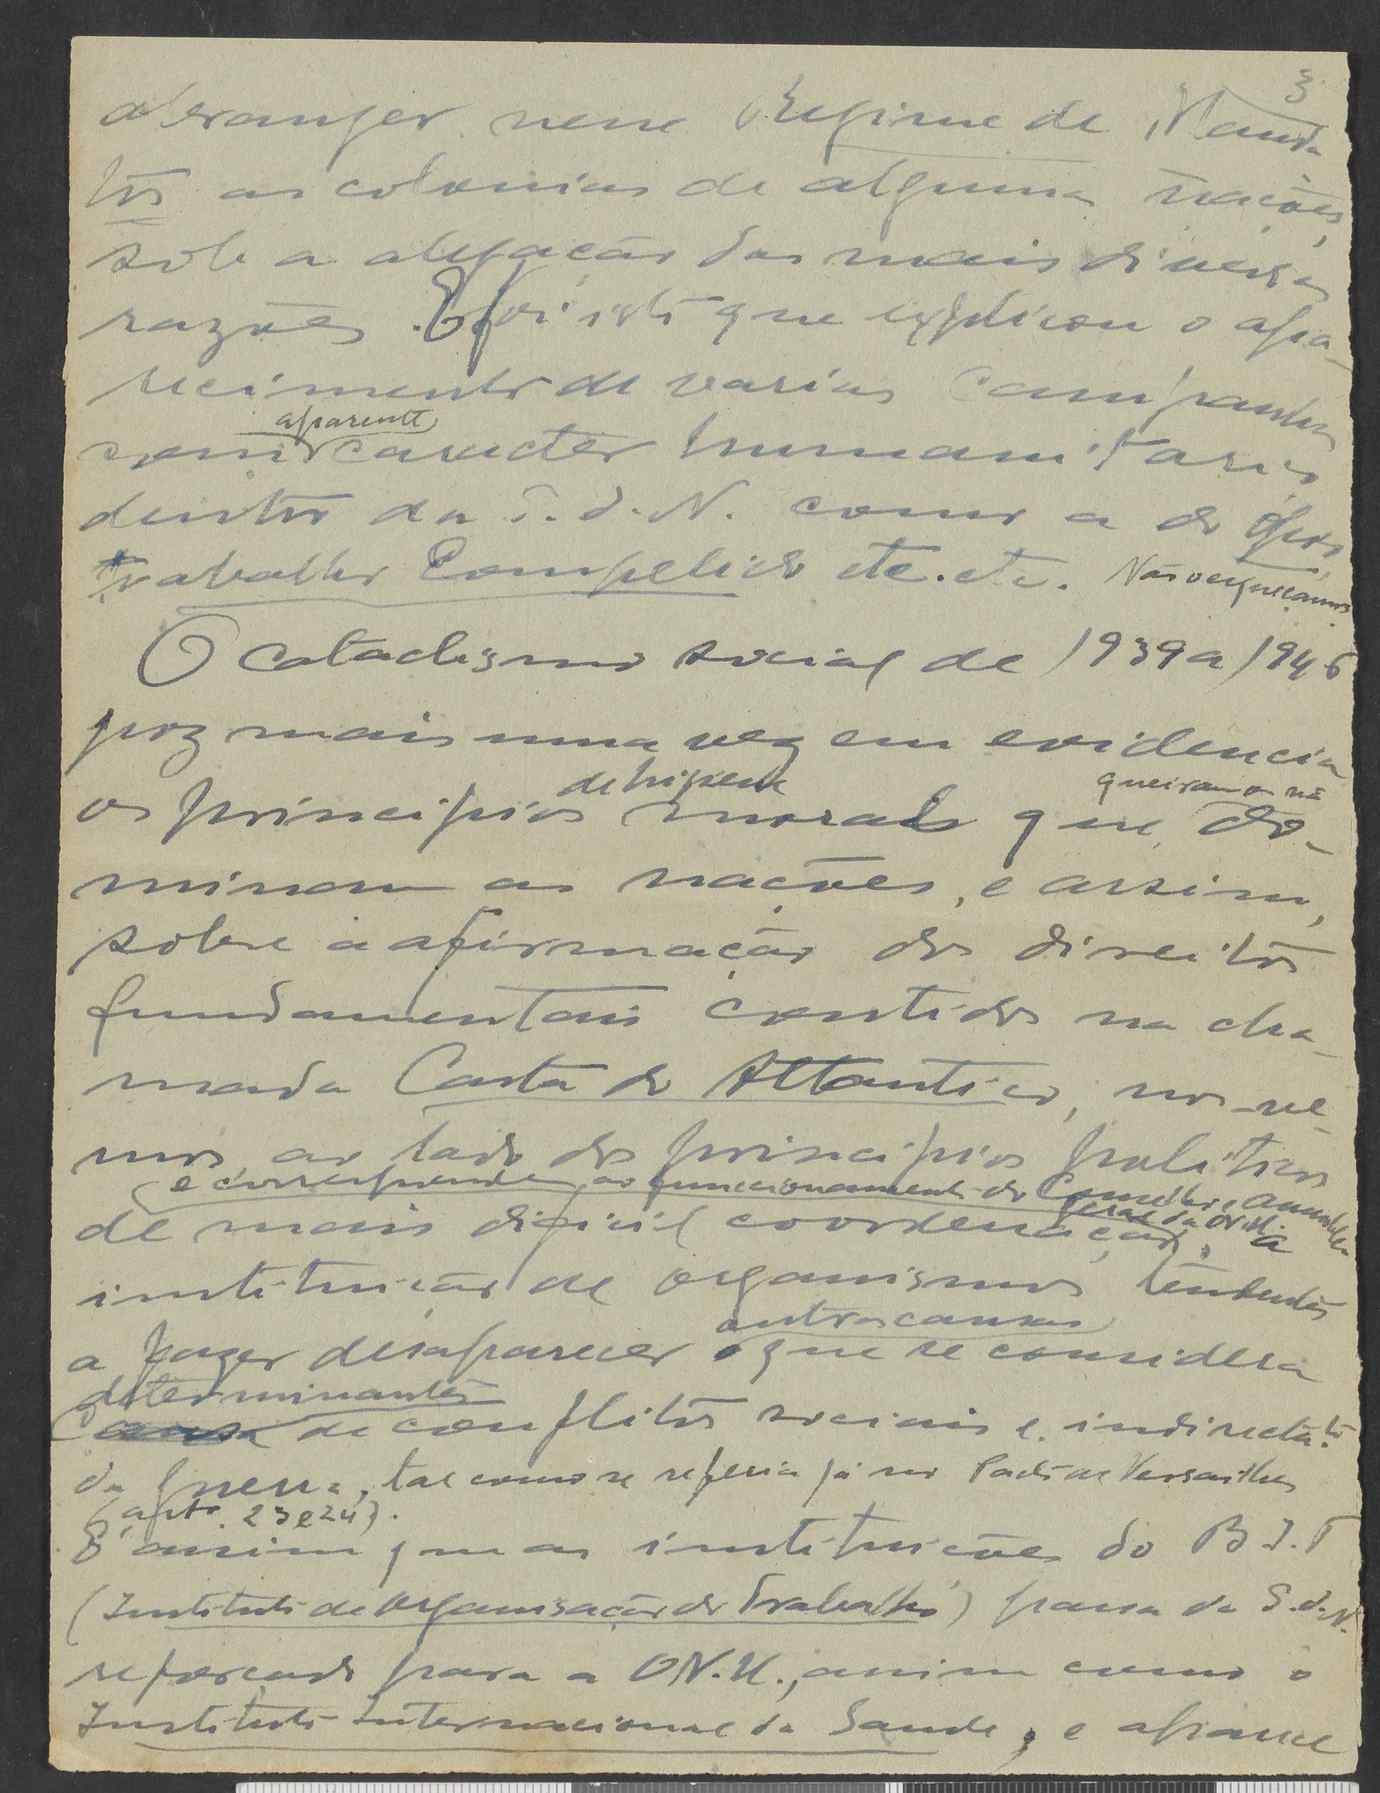 3
abranger nesse Regime de Manda
tos as colonias de algumas nações,
sob a alegação das mais diversas
razões. E foi isto que explicou o apa-
recimento de varias campanhas
aparente
com caracter humanitario
dentro da S. d. N. como a do
trabalho Compelido etc. etc. Não esqueçamos
O cataclismo social de 1939 a 1945
poz mais uma vez em evidencia
de higiene queiram ou não
os principios morais que do-
minam as nações, e assim,
sobre a afirmação dos direitos
fundamentais contidos na cha-
mada Carta do Attantico, nos ve-
mos ao lado dos principios politicos
e correspondem ao funcionamento do Conselho e assembleia
geral da ONU
de mais dificil coordenação, a
instituição de organismos tendentes
outras causas
a fazer desaparecer o que se considera
determinantes
causa de conflitos sociais e indirecta.te
da guerra, tal como se referia já no Pacto de Versailles
(artos. 23 e 24).
É assim que as instituições do B.I.T
(Instituto de Organisação do Trabalho) passa da S.d.N.
reforçado para a O.N.U., assim como o
Instituto Internacional da Saude; e aparece